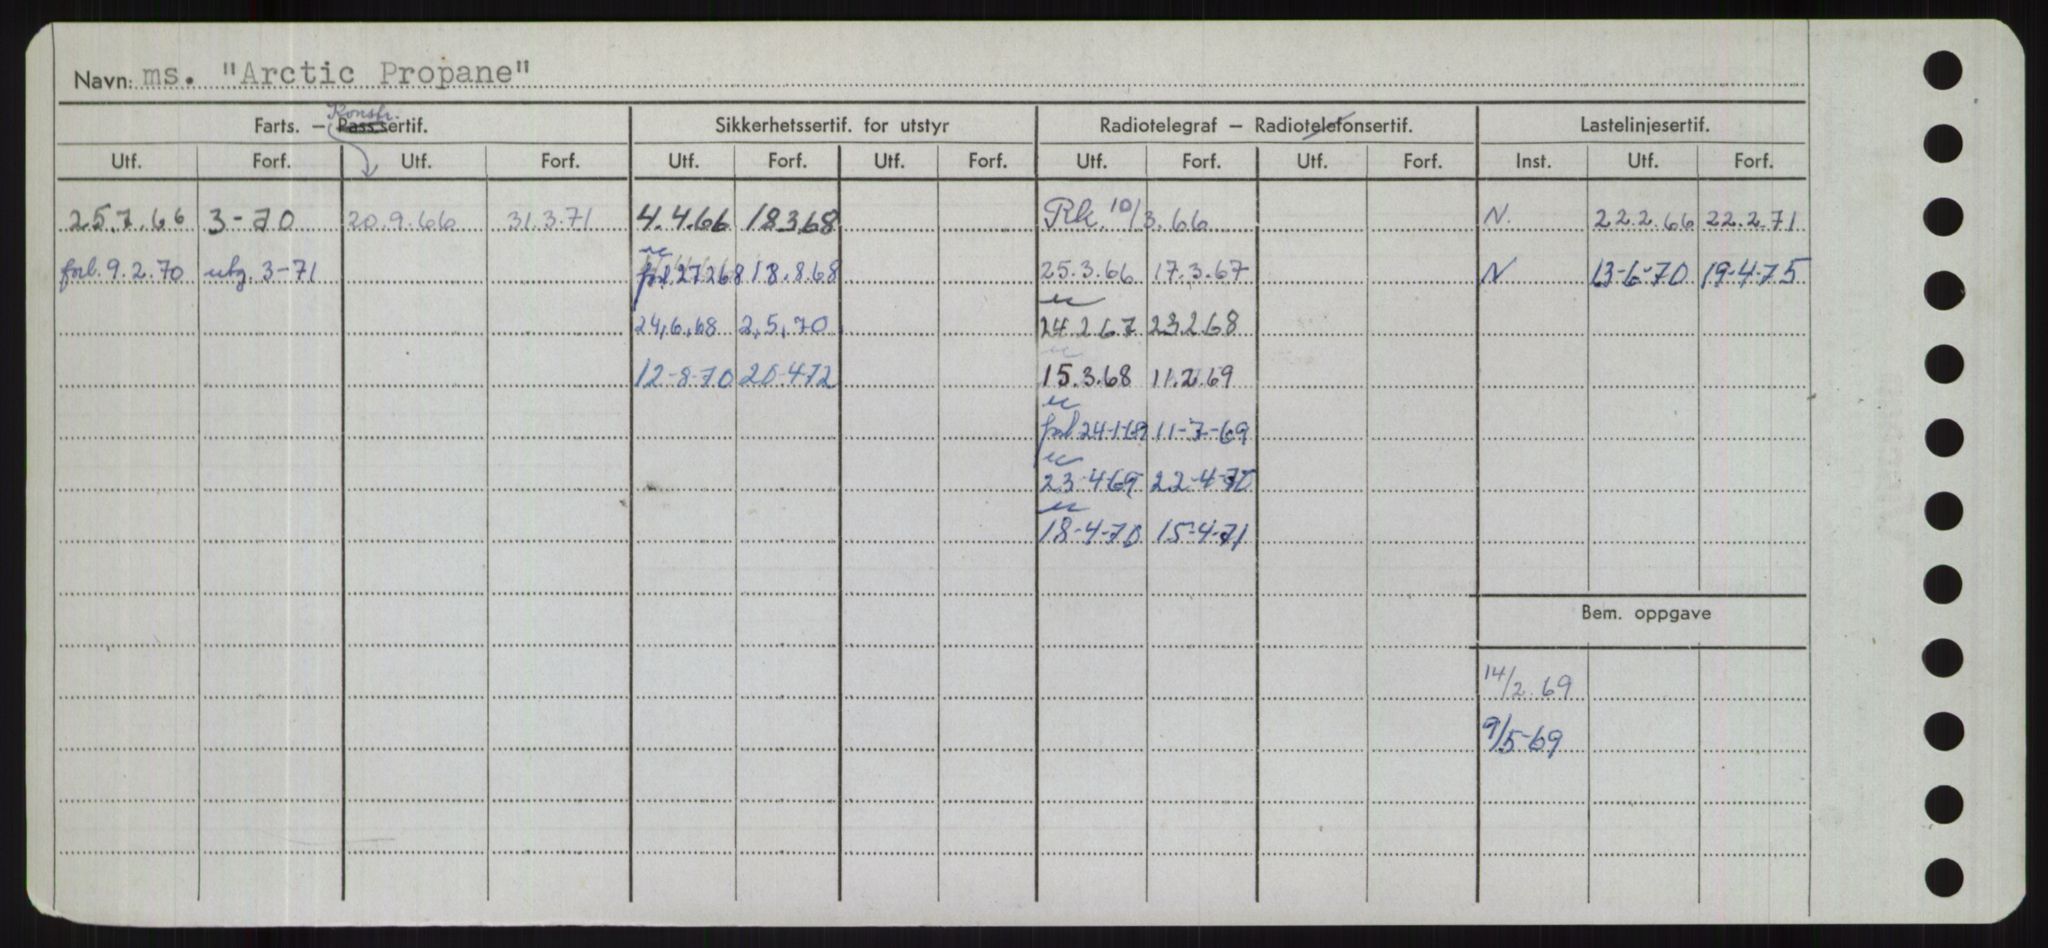 Navn: ms. "Arctic Propane"
Konstr.
Farts. — Passsertif. Sikkerhetssertif. for utstyr Radiotelegraf — Radiotelefonsertif. Lastelinjesertif.
Utf. Forf. Utf. Forf. Utf. Forf. Utf. Forf. Utf. Forf. Utf. Forf. Inst. Utf. Forf.
25.7.66 3-70 20.9.66 31.3.71 4.4.66 18368 Rk. 10/3.66 N. 22.2.66 22.2.71
forl. 9.2.70 utg. 3-71 forl 27268 18.8.68 25.3.66 17.3.67 N 13-6-70 19-4-75
24.6.68 2.5.70 24.2.67 23.2.68
12-8-70 20-472 15.3.68 11.2.69
forl 24-1-69 11-7-69
23-469 22-4-70
18-4-70 15-4-71
Bem. oppgave
14/2.69
9/5-69